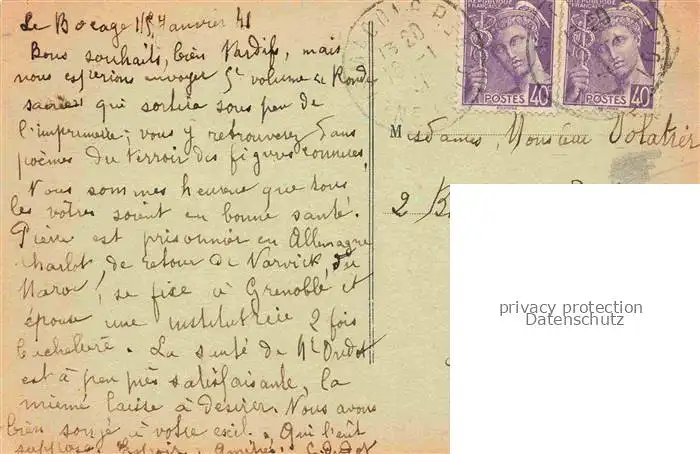 Le Bocage 15 Janvier 41
Bons souhaits, bien tardifs, mais
nous espérions envoyer volume de Ronde
sacrée qui sortira sous peu de
l'imprimerie; vous y retrouverez dans
poèmes du terroir des figures connues.
Nous sommes heureux que tous
les vôtres soient en bonne santé.
Pierre est prisonnier en Allemagne
Charlot, de retour de Narvick, du
Maroc, se fixe à Grenoble et
épouse une institutrice 2 fois
bachelière. La santé de Mr Oudot
est à peu près satisfaisante, la
mienne laisse à désirer. Nous avons
bien songé à votre exil. Qui l'eût
supposé. Espoir. Amitiés.
FRANÇAISE
POSTES 40c
POSTES 40c
13 20
Mesdames, Monsieur Volatier
2
privacy protection
Datenschutz